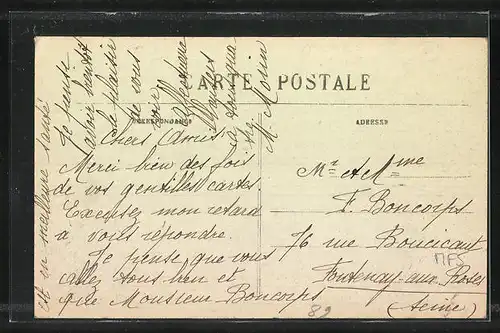 CARTE POSTALE
CORRESPONDANCE
ADRESSE
Chers Amis
Merci bien des fois
de vos gentilles cartes.
Excusez mon retard
à vous répondre.
Je pense que vous
allez tous bien et
que Monsieur Boncorps
est en meilleure santé
Je pense
avoir bientôt
le plaisir
de vous
voir
M. Morin
Mr et Mme
F. Boncorps
76 rue Boucicaut
Fontenay-aux-Roses
(Seine)
89